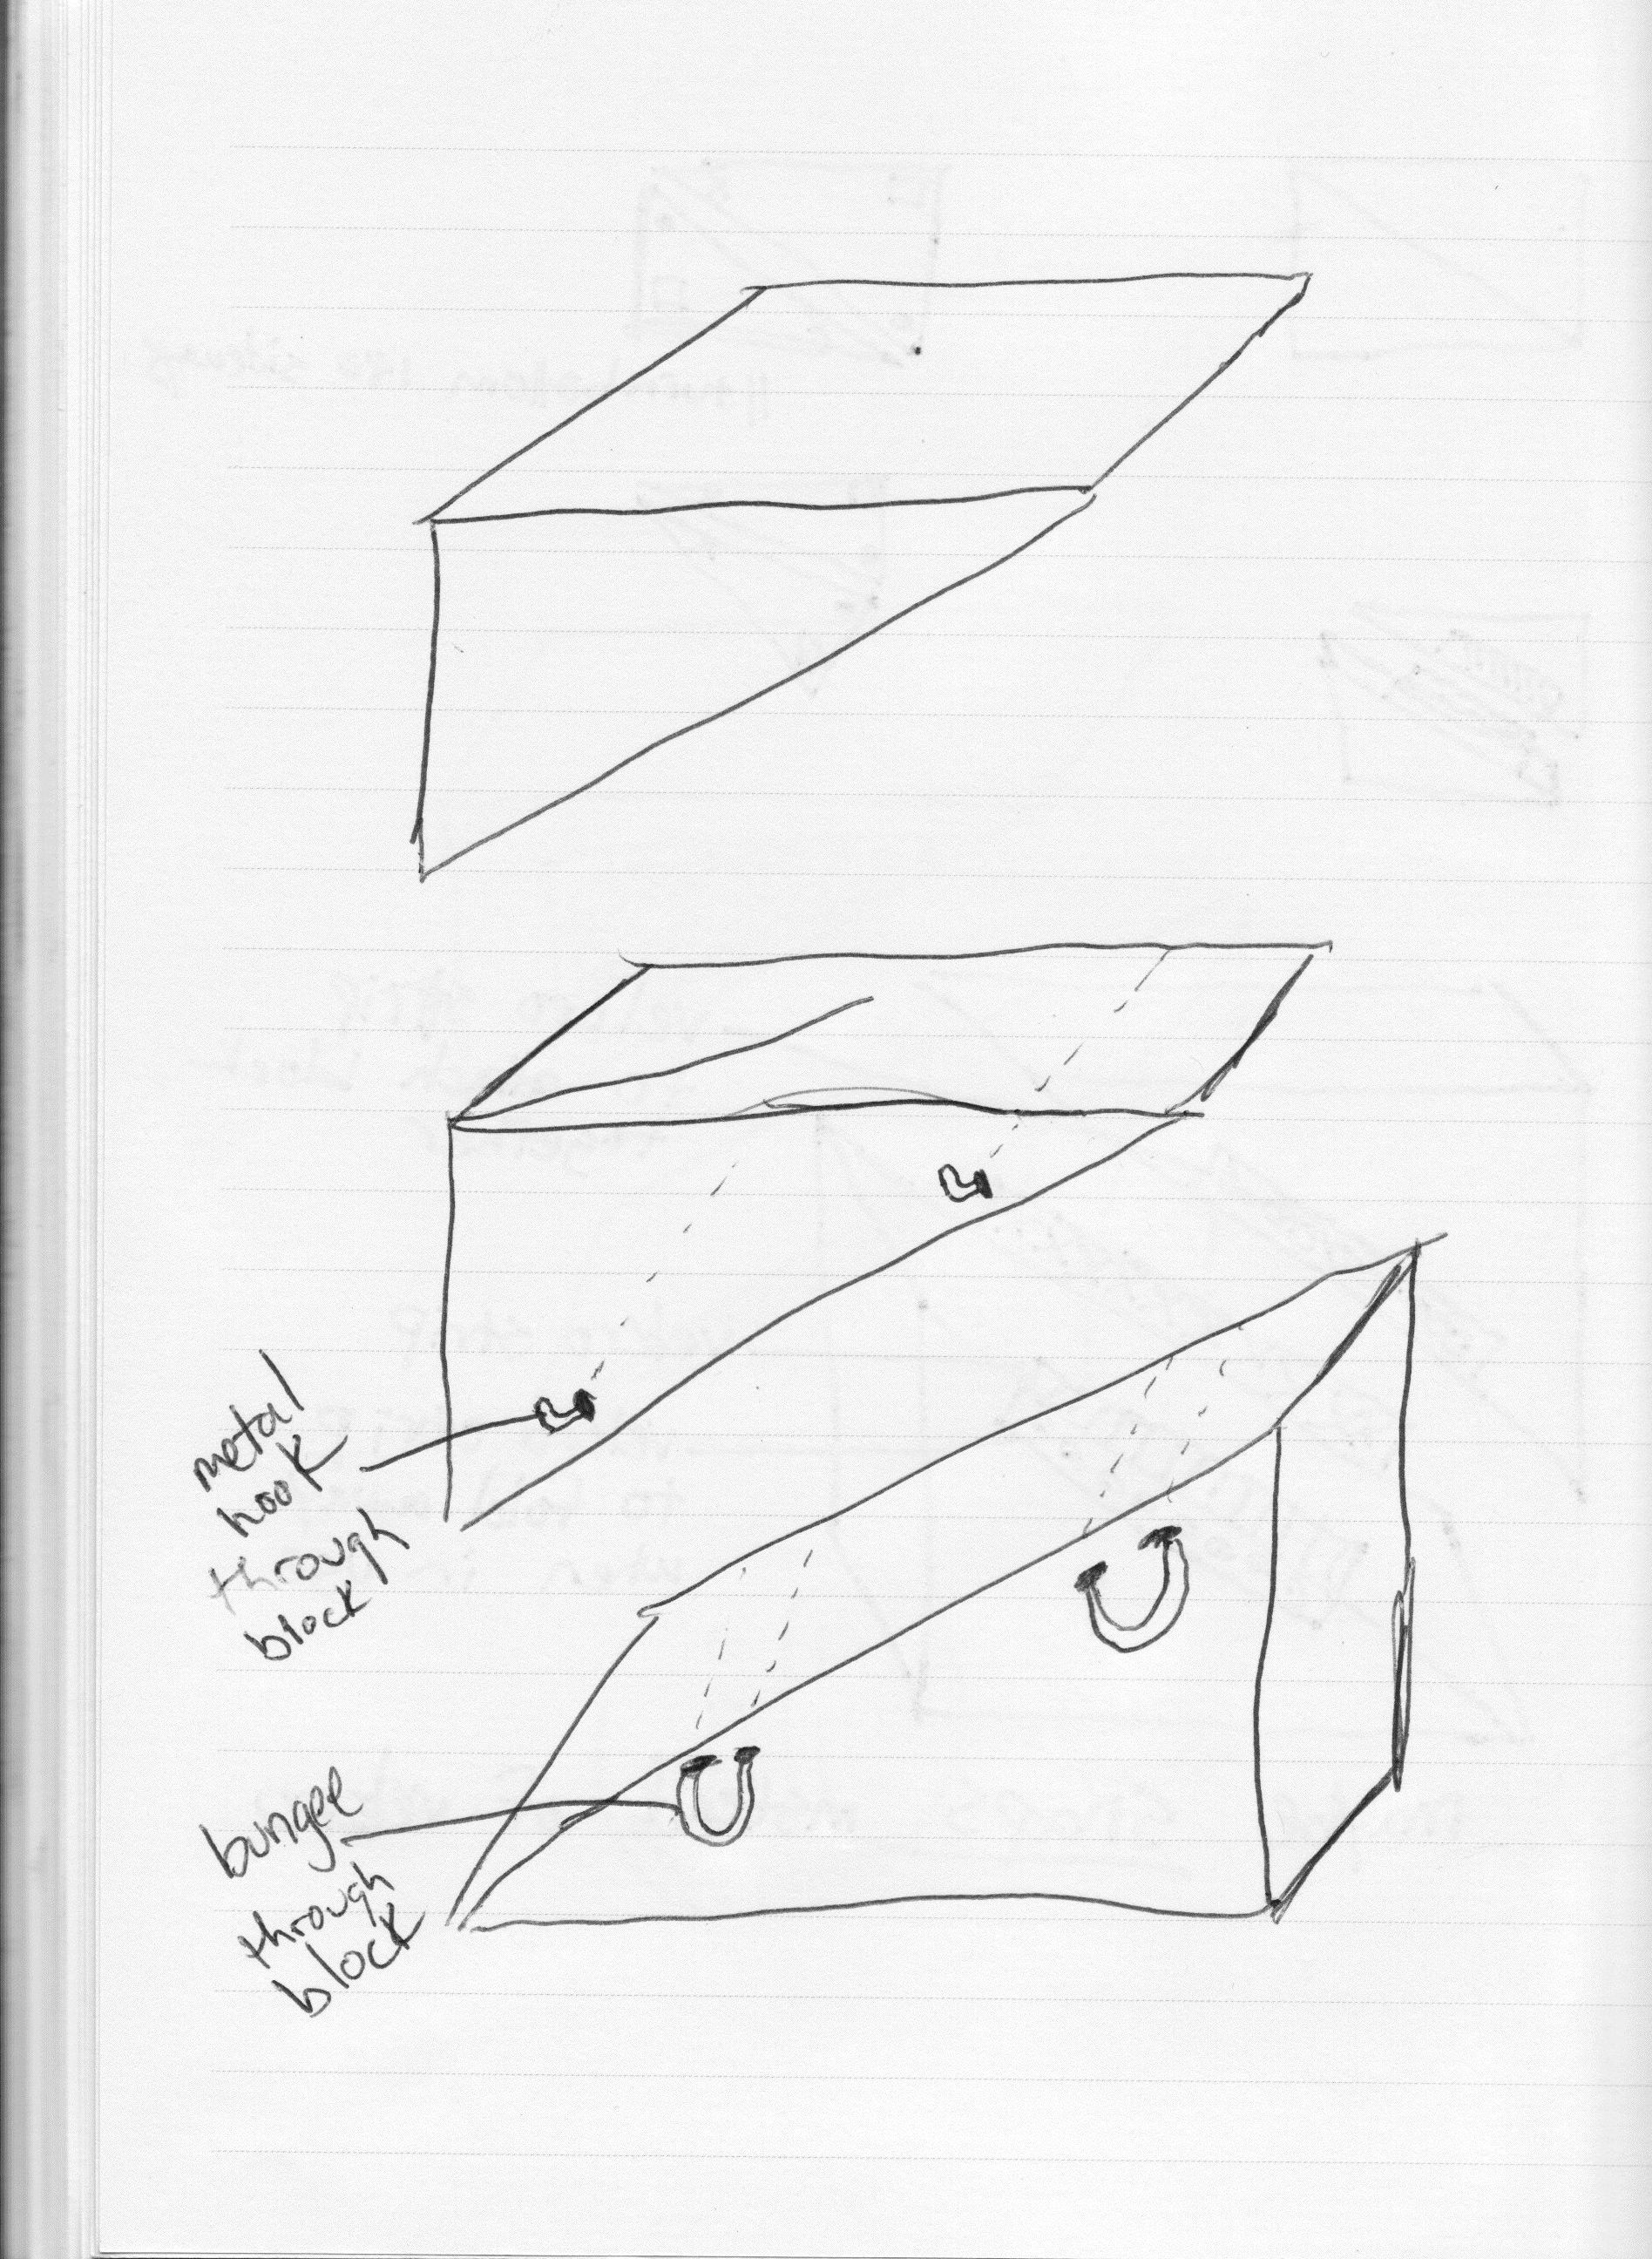 metal
hook
through
block
bungee
through
block